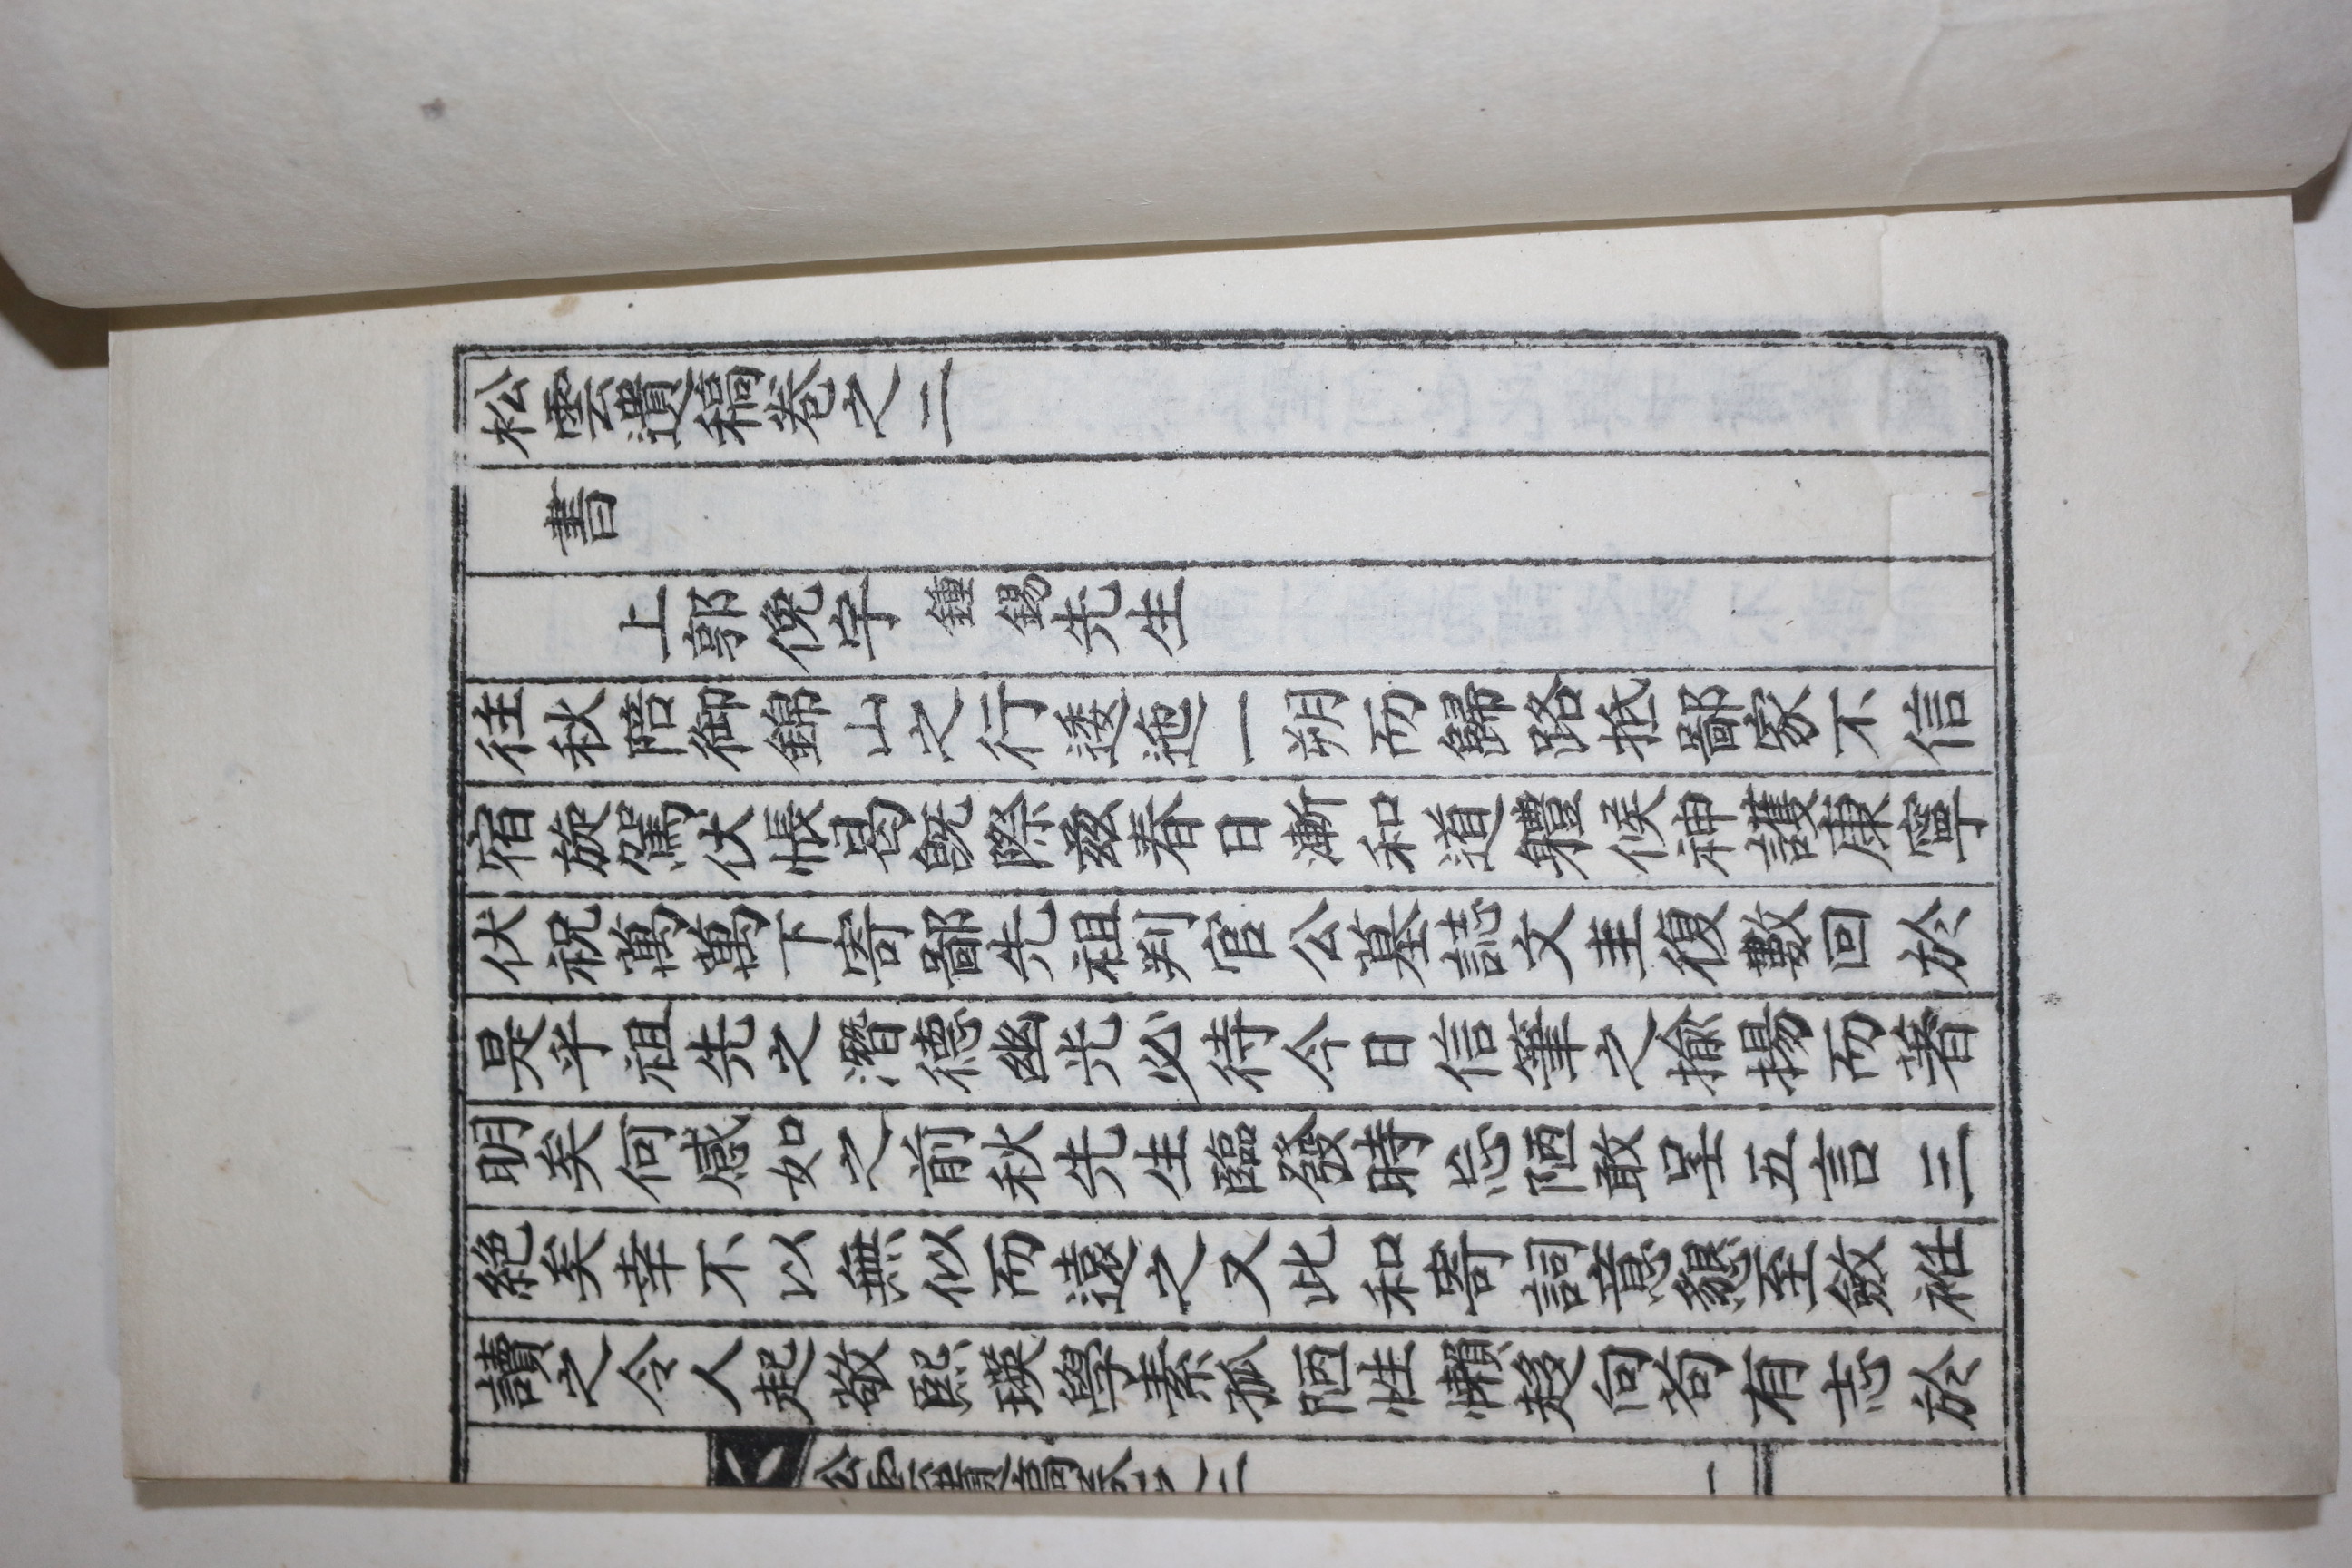 松雲遺稿卷之二
書
上郭俛宇鍾錫先生
往秋陪御錦山之行逶迤一朔而歸路抵鄙家不信
宿旋駕伏悵曷旣際茲春日漸和道軆候神護康寧
伏祝萬萬下寄鄙先祖判官公墓誌文圭復數回於
是乎祖先之潛德幽光必待今日信筆之揄揚而著
明矣何感如之前秋先生臨發時忘陋敢呈五言三
絶矣幸不以無似而遠之又此和寄詞意懇至斂袵
讀之令人起敬熙瑛學素孤陋性懶趍向苟有志於
松雲遺稿卷之二
一